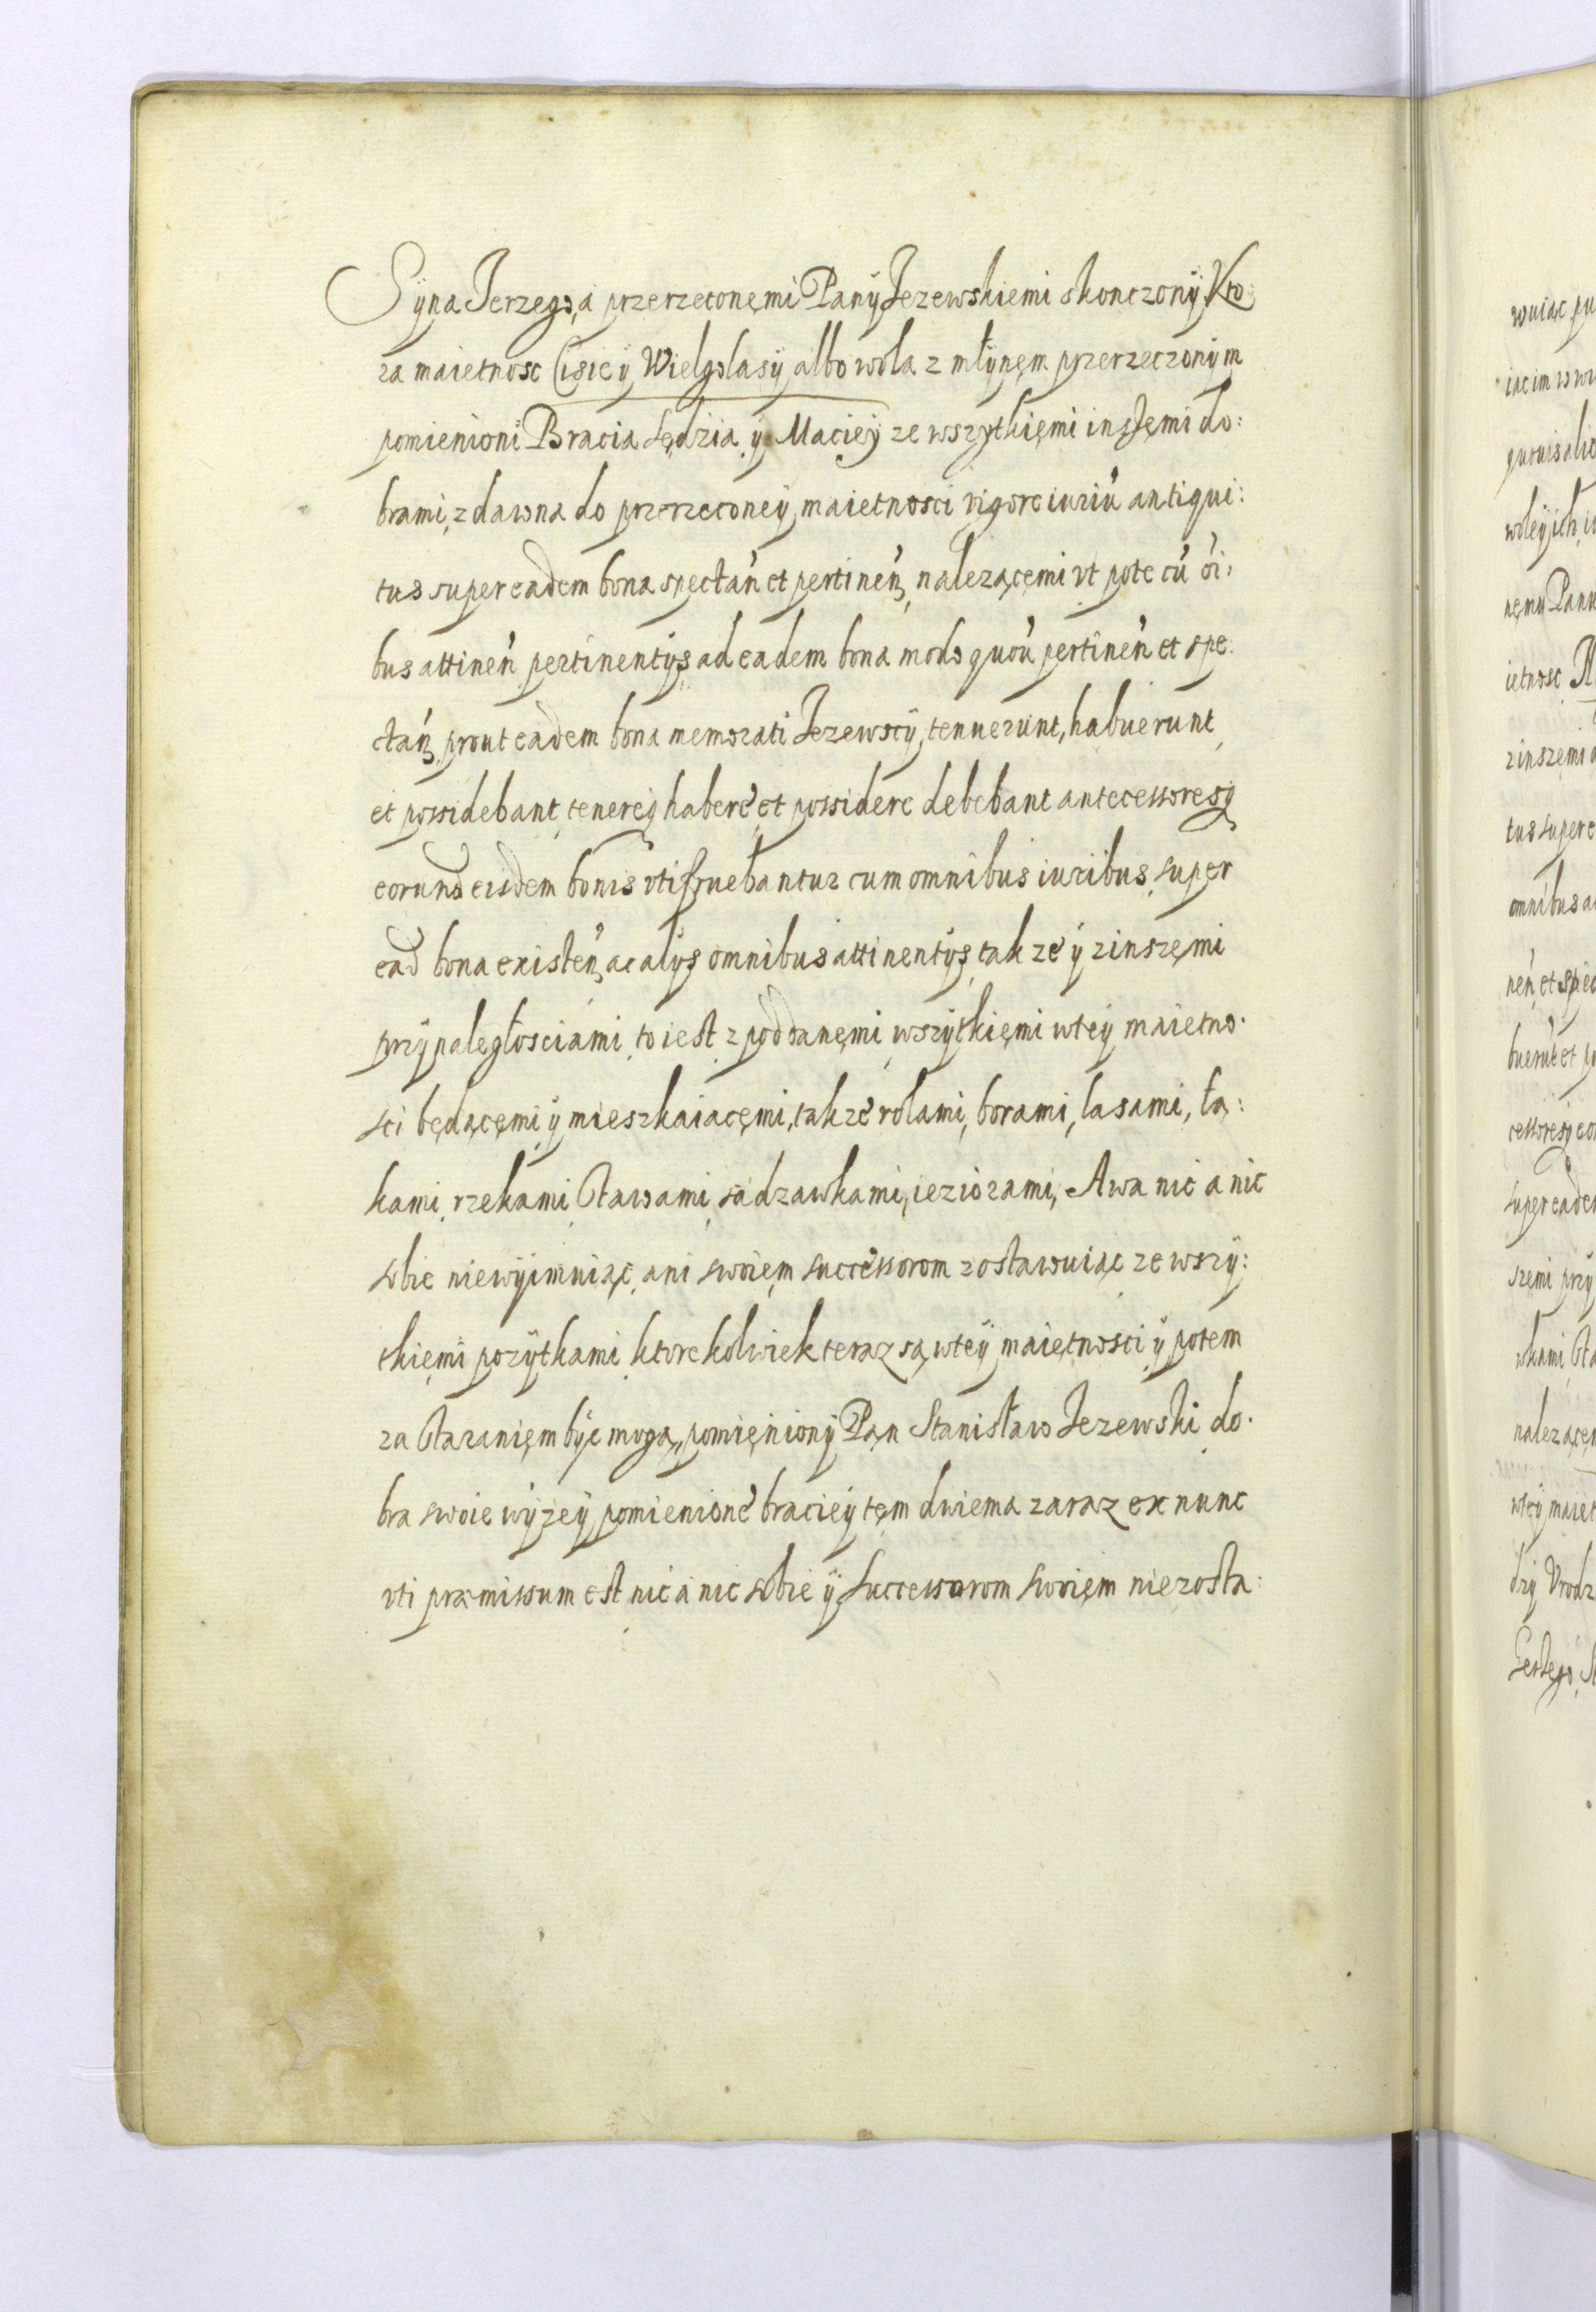 Syna Jerzego, á przerzeconęmi Pany Jezewskiemi skonczony. Kto:
ra maietnosc Cisie ÿ Wielgolasÿ albo wola z młÿnęm przerzeczonÿm
pomienioni Bracia Sędzia ÿ Macieÿ ze wszytkięmi inszęmi do:
brami, z dawna do przerzeconeÿ maietnosci vigore iuriu antiqui:
tus super eadem bona spectań et pertineń, nalezącemi vt pote cu oi:
bus attineń pertinentÿs ad eadem bona modo quou pertineń et spe:
ctań, prout eadem bona memorati Jezewscÿ, tenuerunt, habuerunt
et possidebant, tenereq habere et possidere debebant antecessoresq
eorund eisdem bonis vtifruebantur cum omnibus iuribus, super
ead bona existeń, ac alÿs omnibus attinentÿs, tak ze ÿ zinszęmi
przÿpaległosciami, to iest z poddanęmi wszÿtkięmi wteÿ maietno:
sci będącęmi ÿ mieszkaiacęmi, takze rolami, borami, lasami, łą:
kami, rzekami, stawami, sadzawkami, ieziorami, Awa nic a nic
sobie niewÿimuiąc, ani swoięm successorom zostawuiąc ze wszÿ:
tkięmi pozÿtkami, ktorekolwiek teraz są wteÿ maietnosci ÿ potem
za staranięm bÿc mogą, pomięnionÿ Pan Stanisław Jezewski do:
bra swoie wÿzeÿ pomienione bracieÿ tęm dwiema zaraz ex nunc
vti præmissum est nic á nic sobie ÿ Successorom swoięm niezosta:
wuiąc
iacim
quouis alio
woleÿ ich
nęmu Panu
ietnosc
zinszęmi
tus super e
omnibus a
neń et spec
buerut et
cessoresq eo
super eadem
szęmi przÿ
wkami
nalezącem
wteÿ maiet